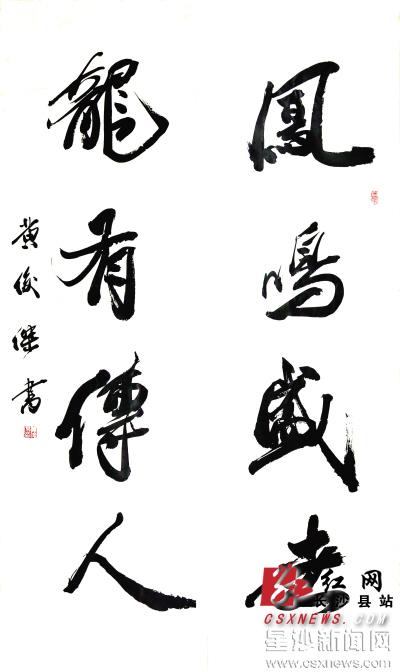 鳳鳴盛世
龍有傳人
黄俊傑書
红网
长沙县站
CSXNEWS.COM
星沙新闻网
www.csxnews.com